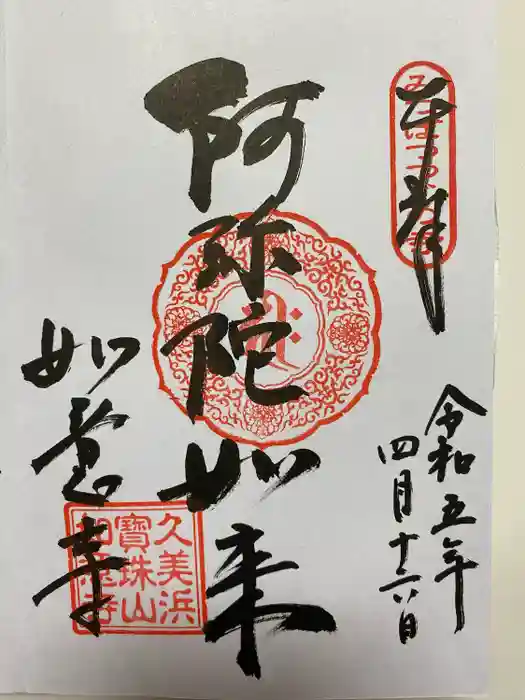 奉拝
令和五年
四月十六日
阿弥陀如来
如意寺
久美浜
寶珠山
如意寺